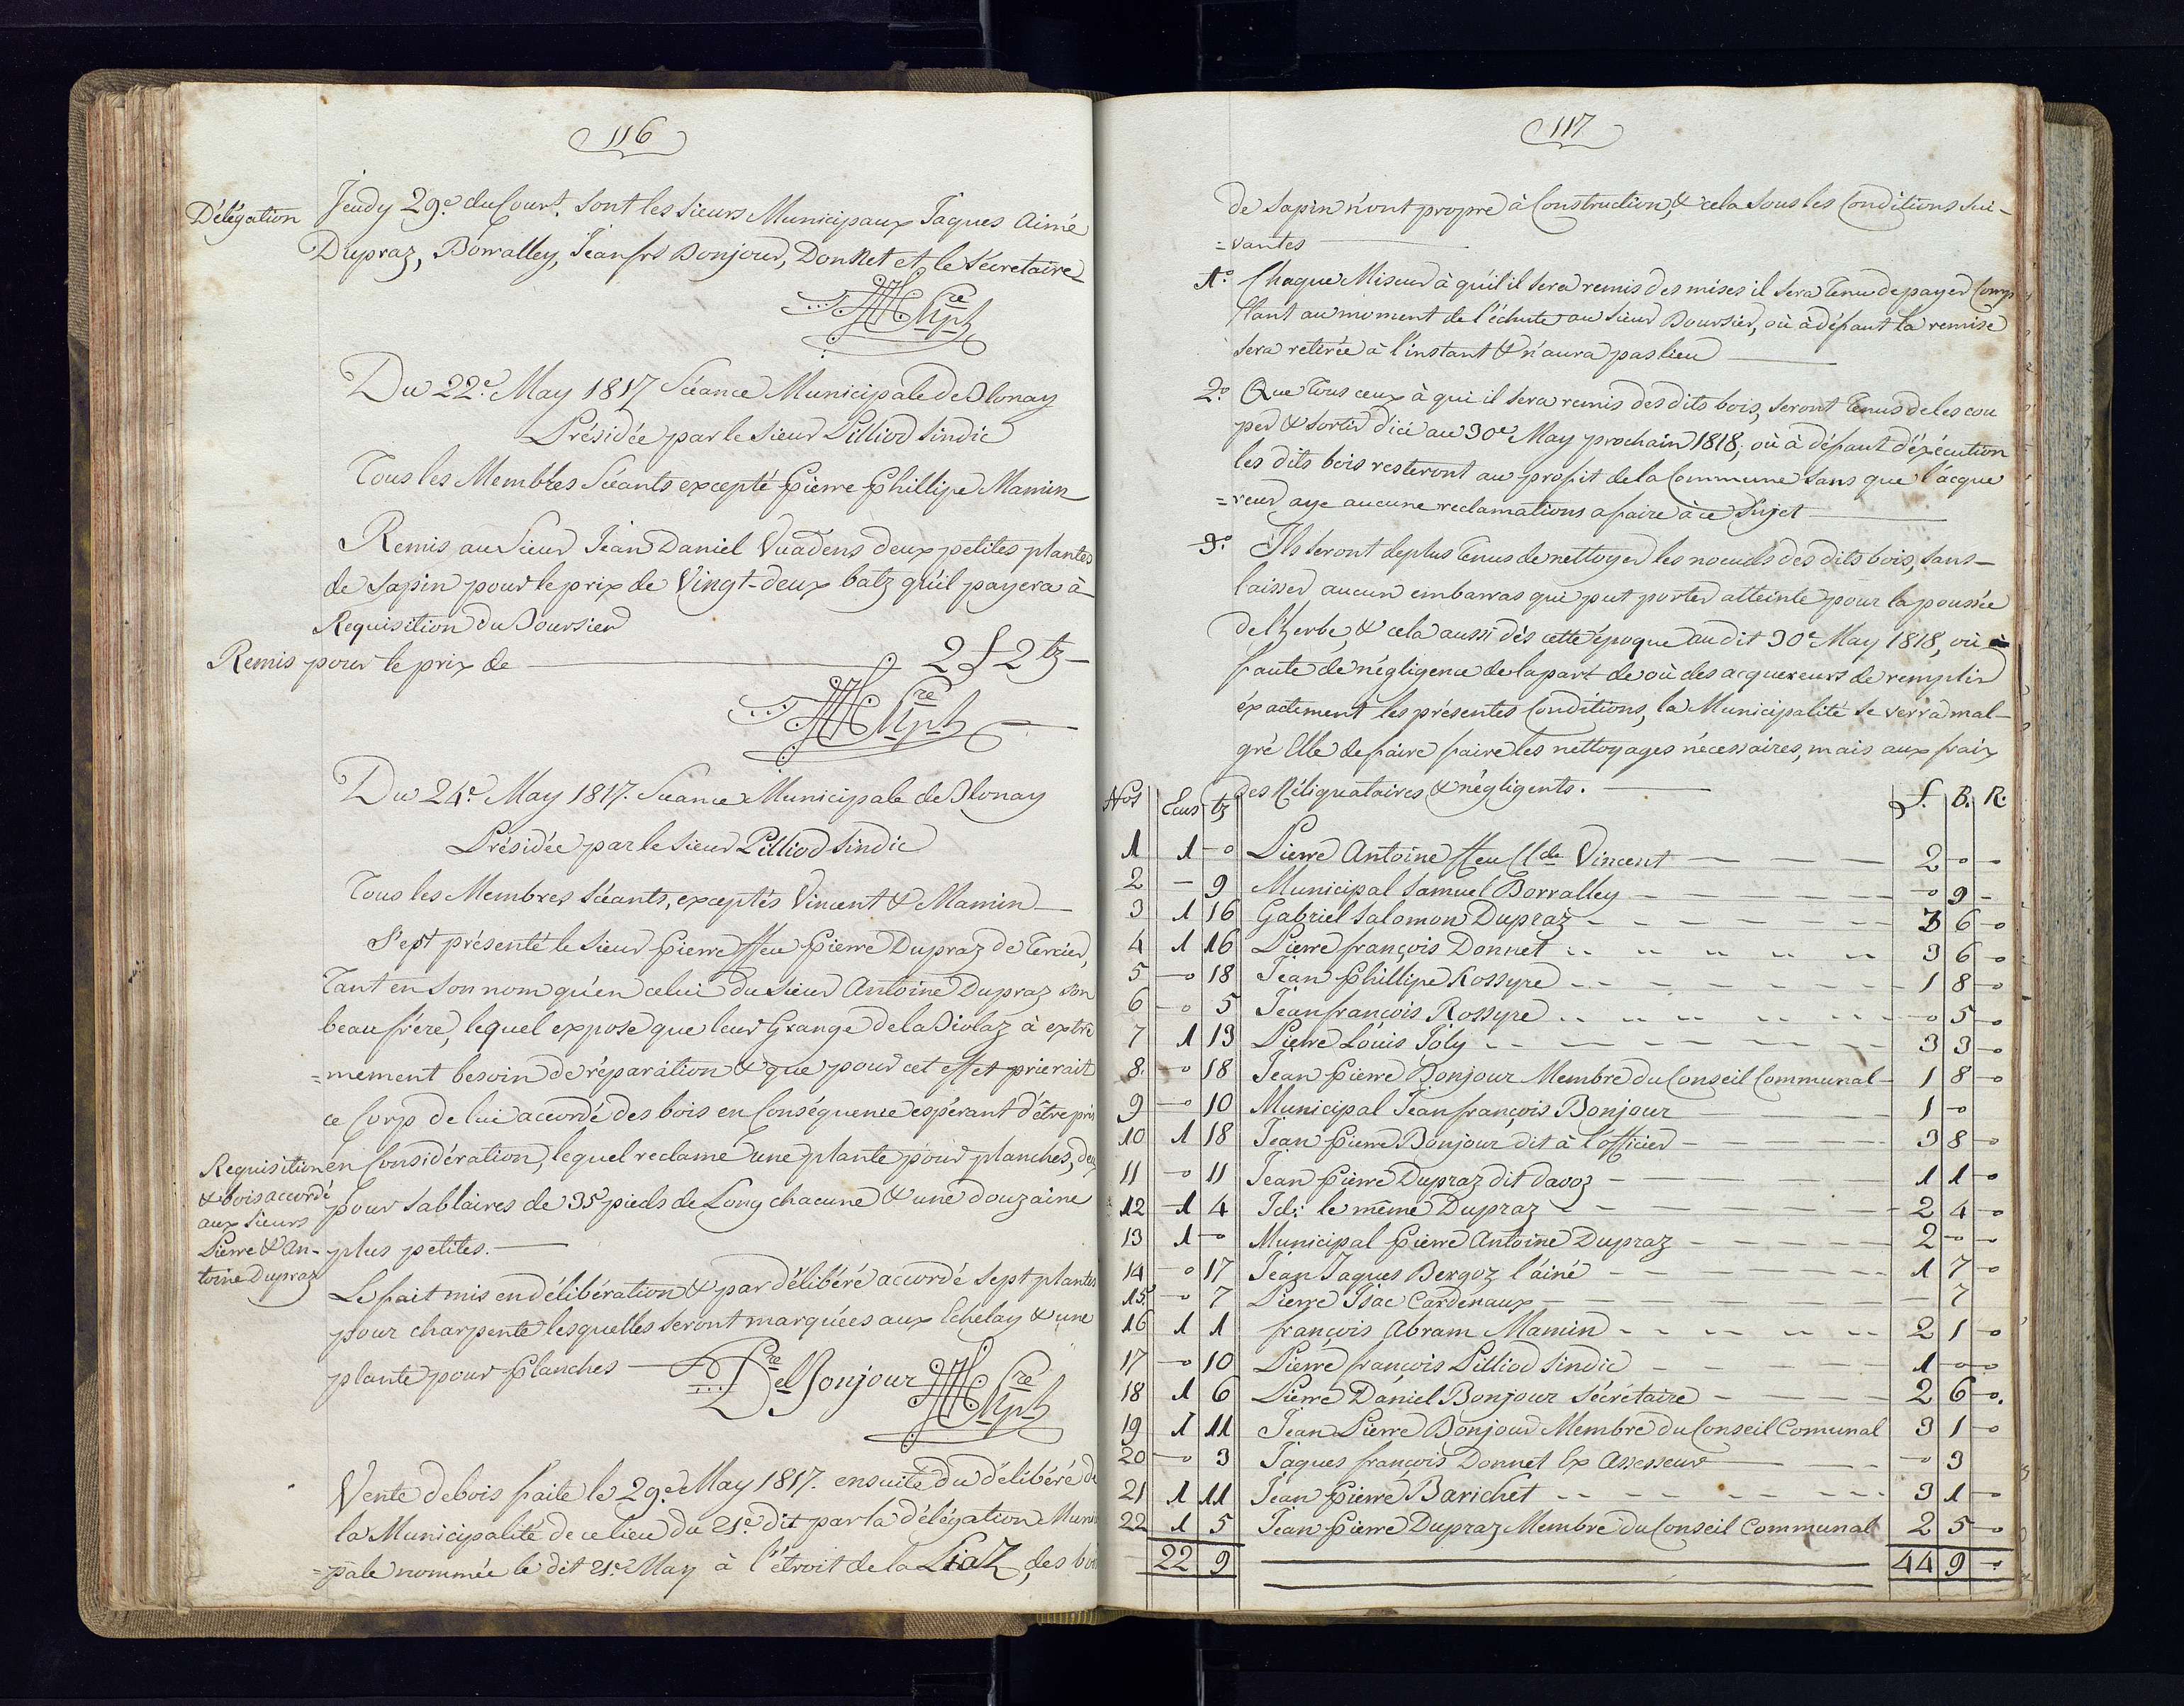 116
Délégation
Jeudy 29e du Court. sont les sieurs Municipaux Jaques Aimé
Dupraz, Borralley, Jean frs Bonjour, Donnet et le Sécretaire
Du 22e. May 1817 Séance Municipale de Blonay
Présidée par le Sieur Pilliod Sindic
Tous les Membres Séants excepté Pierre Phillipe Mamin
Remis au Sieur Jean Daniel Vuadens deux petites plantes
de Sapin pour le prix de Vingt-deux batz qu'il payera à
Requisition du Boursier
Remis pour le prix de 2 f 2 tz
Du 24e. May 1817. Séance Municipale de Blonay
Présidée par le Sieur Pilliod Sindic
Tous les Membres Séants, exceptés Vincent & Mamin
S'est présenté le Sieur Pierre ffeu Pierre Dupraz de Tercier,
Tant en son nom qu'en celui du Sieur Antoine Dupraz son
beau frère, lequel expose que leur Grange de la Siolaz à extrê
=mement besoin de réparation & que pour cet effet prierait
ce Corp de lui accordé des bois en Conséquence espérant d'être pris
en Considération, lequel reclame une plante pour planches, deux
pour sablaires de 35 pieds de Long chacune & une douzaine
plus petites.
Requisition
& bois accordé
aux Sieurs
Pierre & An-
toine Dupraz
Le fait mis en délibération & par délibéré accordé sept plantes
pour charpente lesquelles seront marquées aux Echelay & une
plante pour Planches
Del Bonjour
Vente de bois faite le 29e May 1817. ensuite du délibéré de
la Municipalité de ce lieu du 21e dit par la délégation Muni
=pale nommée le dit 21e May à l'étroit de la Liaz, des boi
117
de Sapin n'ont propre à Construction, & cela sous les Conditions sui-
=vantes
1o. Chaque Miseur à qu'il il sera remis des mises il sera Tenu de payer Comp
tant au moment de l'échute au Sieur Boursier, où à défaut la remise
sera retirée à l'instant & n'aura pas lieu
2o. Que Tous ceux à qui il sera remis des dits bois, seront Tenus de les cou
per & sortir d'ici au 30e May prochain 1818, où à défaut d'éxécution
les dits bois resteront au profit de la Commune sans que l'acque
=reur aye aucune reclamations a faire à ce Sujet
3o. Ils seront deplus Tenus de nettoyer les noeuds des dits bois, sans
laisser aucun embarras qui put porter atteinte pour la poussée
de l'herbe, & cela aussi dès cette époque au dit 30e May 1818, où à
faute de négligence de la part de où des acquereurs de remplir
éxactement les présentes Conditions, la Municipalité se verra mal-
gré Elle de faire faire les nettoyages nécessaires, mais aux fraix
des Réliquataires & négligents.
Nos Ecus tz f. B. R.
1 1 -o Pierre Antoine ffeu Cl de Vincent 2 -o -o
2 - 9 Municipal Samuel Borralley -o 9 -
3 1 16 Gabriel Salomon Dupraz 3 6 -o
4 1 16 Pierre françois Donnet 3 6 -o
5 -o 18 Jean Phillipe Rossyre 1 8 -o
6 -o 5 Jean françois Rossyre -o 5 -o
7 1 13 Pierre Louis Joly 3 3 -o
8 -o 18 Jean Pierre Bonjour Membre du Conseil Communal 1 8 -o
9 -o 10 Municipal Jean françois Bonjour 1 -o
10 1 18 Jean Pierre Bonjour dit à l'officier 3 8 -o
11 -o 11 Jean Pierre Dupraz dit davoz 1 1 -o
12 1 4 Id: le même Dupraz 2 4 -o
13 1 -o Municipal Pierre Antoine Dupraz 2 -o -o
14 -o 17 Jean Jaques Bergoz l'ainé 1 7 -o
15 -o 7 Pierre Isac Cardenaux - 7
16 1 1 françois Abram Mamin 2 1 -o
17 -o 10 Pierre françois Pilliod Sindic 1 -o -o
18 1 6 Pierre Daniel Bonjour Sécrétaire 2 6 -o.
19 1 11 Jean Pierre Bonjour Membre du Conseil Comunal 3 1 -o
20 -o 3 Jaques françois Donnet Ex Assesseur -o 3
21 1 11 Jean Pierre Barichet 3 1 -o
22 1 5 Jean Pierre Dupraz Membre du Conseil Communal 2 5 -o
22 9 44 9 -o